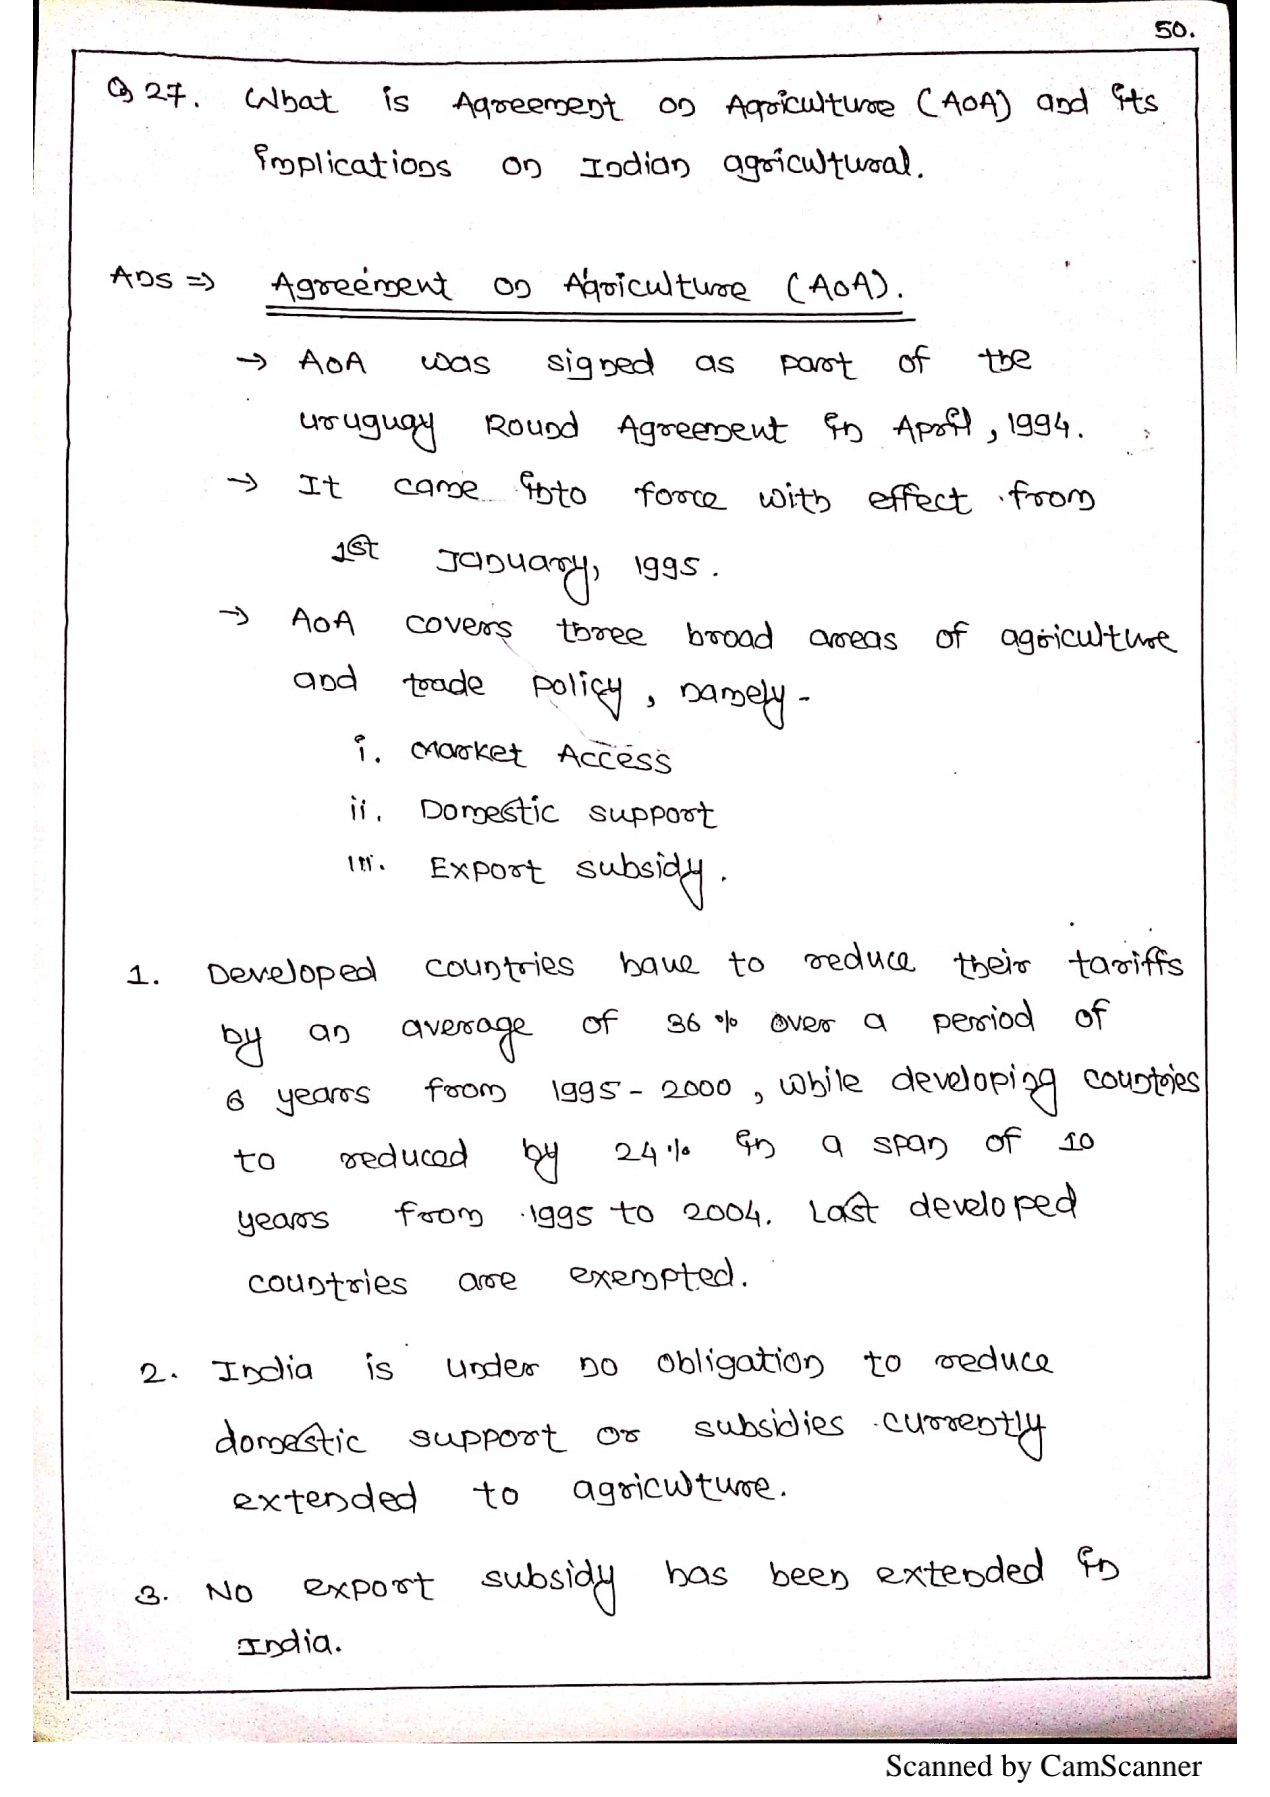 50.
Q 27. What is Agreement on Agriculture (AOA) and its
implications on Indian agricultural.
Ans => Agreement on Agriculture (AOA).
→ AOA was signed as part of the
uruguay Round Agreement in April, 1994.
→ It came into force with effect from
1st January, 1995.
→ AOA covers three broad areas of agriculture
and trade policy, namely -
i. Market Access
ii. Domestic support
iii. Export subsidy.
1. Developed countries have to reduce their tariffs
by an average of 36% over a period of
6 years from 1995-2000, while developing countries
to reduced by 24% in a span of 10
years from 1995 to 2004. Last developed
countries are exempted.
2. India is under no obligation to reduce
domestic support or subsidies currently
extended to agriculture.
3. No export subsidy has been extended in
India.
Scanned by CamScanner